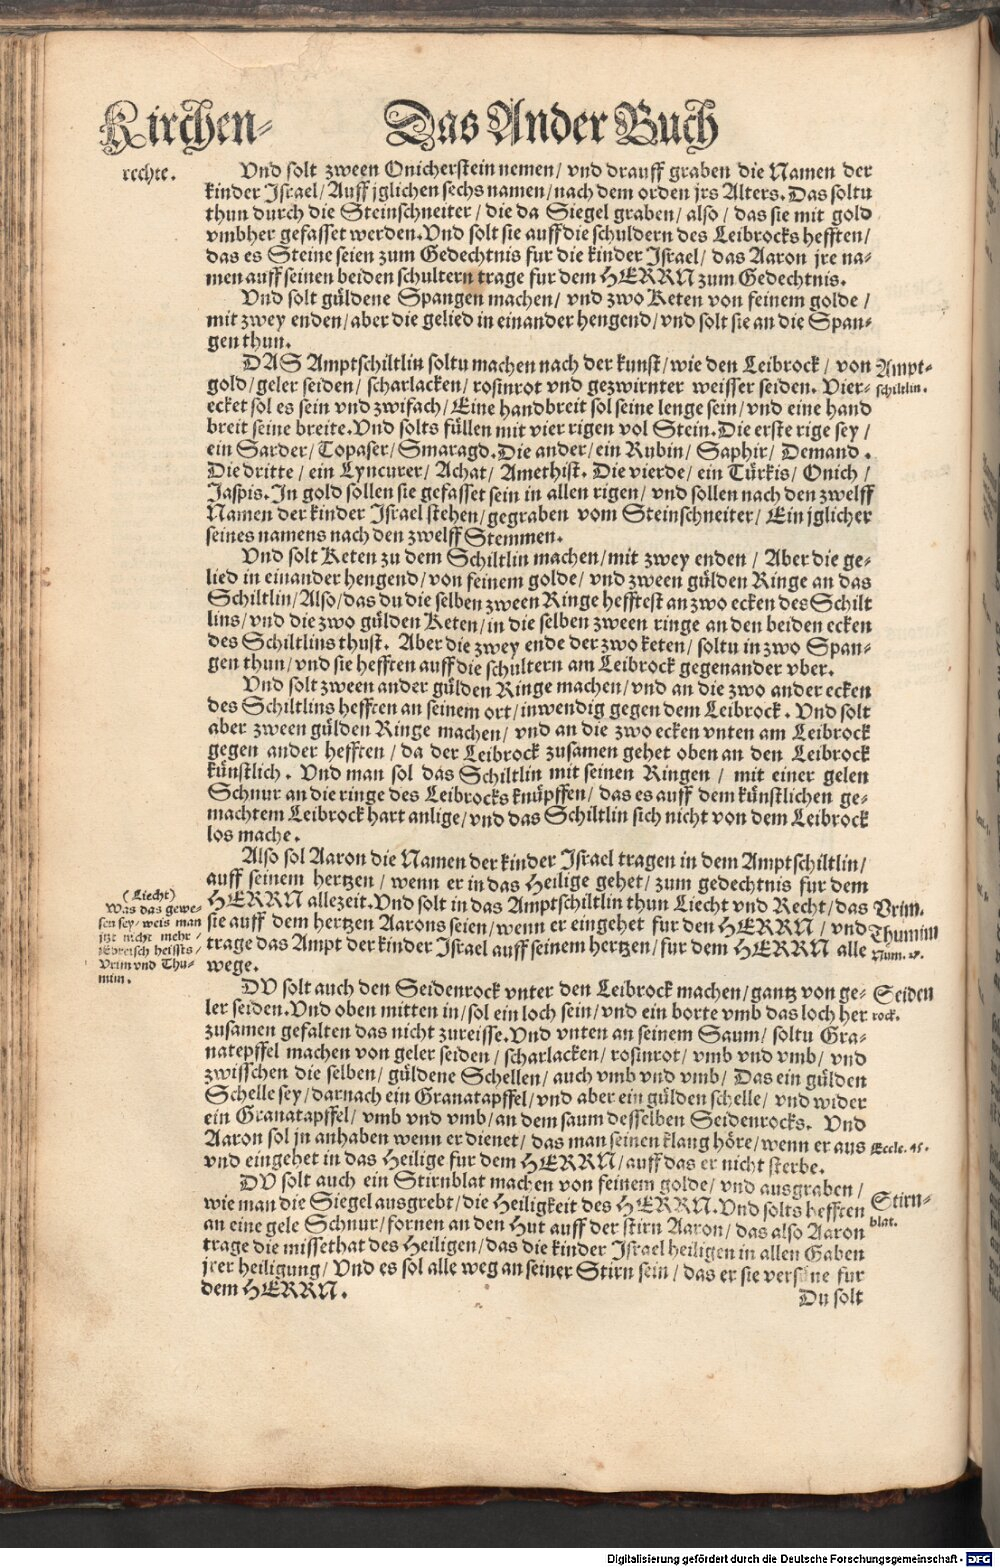 Kirchen-
Das Ander Buch
rechte.
Vnd solt zween Onicherstein nemen/ vnd drauff graben die Namen der
kinder Jsrael/ Auff jglichen sechs namen/ nach dem orden jrs Alters. Das soltu
thun durch die Steinschneiter/ die da Siegel graben/ also/ das sie mit gold
vmbher gefasset werden. Vnd solt sie auff die schuldern des Leibrocks hefften/
das es Steine seien zum Gedechtnis fur die kinder Jsrael/ das Aaron jre na-
men auff seinen beiden schultern trage fur dem HERRN zum Gedechtnis.
Vnd solt güldene Spangen machen/ vnd zwo Keten von feinem golde/
mit zwey enden/ aber die gelied in einander hengend/ vnd solt sie an die Span-
gen thun.
DAS Amptschiltlin soltu machen nach der kunst/ wie den Leibrock/ von
gold/ geler seiden/ scharlacken/ rosinrot vnd gezwirnter weisser seiden. Vier-
ecket sol es sein vnd zwifach/ Eine handbreit sol seine lenge sein/ vnd eine hand
breit seine breite. Vnd solts füllen mit vier rigen vol Stein. Die erste rige sey/
ein Sarder/ Topaser/ Smaragd. Die ander/ ein Rubin/ Saphir/ Demand.
Die dritte/ ein Lyncurer/ Achat/ Amethist. Die vierde/ ein Türkis/ Onich/
Jaspis. Jn gold sollen sie gefasset sein in allen rigen/ vnd sollen nach den zwelff
Namen der kinder Jsrael stehen/ gegraben vom Steinschneiter/ Ein jglicher
seines namens nach den zwelff Stemmen.
Ampt-
schiltlin.
Vnd solt Keten zu dem Schiltlin machen/ mit zwey enden/ Aber die ge-
lied in einander hengend/ von feinem golde/ vnd zween gülden Ringe an das
Schiltlin/ Also/ das du die selben zween Ringe hefftest an zwo ecken des Schilt
lins/ vnd die zwo gülden Keten/ in die selben zween ringe an den beiden ecken
des Schiltlins thust. Aber die zwey ende der zwo keten/ soltu in zwo Span-
gen thun/ vnd sie hefften auff die schultern am Leibrock gegenander vber.
Vnd solt zween ander gülden Ringe machen/ vnd an die zwo ander ecken
des Schiltlins hefften an seinem ort/ inwendig gegen dem Leibrock. Vnd solt
aber zween gülden Ringe machen/ vnd an die zwo ecken vnten am Leibrock
gegen ander hefften/ da der Leibrock zusamen gehet oben an den Leibrock
künstlich. Vnd man sol das Schiltlin mit seinen Ringen/ mit einer gelen
Schnur an die ringe des Leibrocks knüpffen/ das es auff dem künstlichen ge-
machtem Leibrock hart anlige/ vnd das Schiltlin sich nicht von dem Leibrock
los mache.
Also sol Aaron die Namen der kinder Jsrael tragen in dem Amptschiltlin/
auff seinem hertzen/ wenn er in das Heilige gehet/ zum gedechtnis fur dem
HERRN allezeit. Vnd solt in das Amptschiltlin thun Liecht vnd Recht/ das
sie auff dem hertzen Aarons seien/ wenn er eingehet fur den HERRN/ vnd
trage das Ampt der kinder Jsrael auff seinem hertzen/ fur dem HERRN alle
wege.
(Liecht)
Was das gewe-
sen sey/ weis man
jtzt nicht mehr/
Ebreisch heissts/
Vrim vnd Thu-
mim.
Vrim.
Thumim
Num.
DV solt auch den Seidenrock vnter den Leibrock machen/ gantz von ge-
ler seiden. Vnd oben mitten in/ sol ein loch sein/ vnd ein borte vmb das loch her
zusamen gefalten das nicht zureisse. Vnd vnten an seinem Saum/ soltu Gra-
natepffel machen von geler seiden/ scharlacken/ rosinrot/ vmb vnd vmb/ vnd
zwisschen die selben/ güldene Schellen/ auch vmb vnd vmb/ Das ein gülden
Schelle sey/ darnach ein Granatapffel/ vnd aber ein gülden schelle/ vnd wider
ein Granatapffel/ vmb vnd vmb/ an dem saum desselben Seidenrocks. Vnd
Aaron sol jn anhaben wenn er dienet/ das man seinen klang höre/ wenn er aus
vnd eingehet in das Heilige fur dem HERRN/ auff das er nicht sterbe.
Seiden
rock.
Eccle. 45.
DV solt auch ein Stirnblat machen von feinem golde/ vnd ausgraben/
wie man die Siegel ausgrebt/ die Heiligkeit des HERRN. Vnd solts hefften
an eine gele Schnur/ fornen an den Hut auff der stirn Aaron/ das also Aaron
trage die missethat des Heiligen/ das die kinder Jsrael heiligen in allen Gaben
jrer heiligung/ Vnd es sol alle weg an seiner Stirn sein/ das er sie versüne fur
dem HERRN.
Stirn-
blat.
Du solt
Digitalisierung gefördert durch die Deutsche Forschungsgemeinschaft - DFG